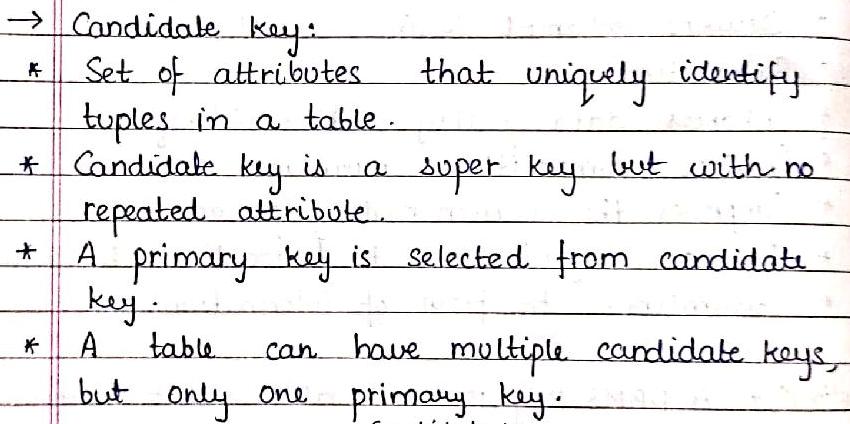 → Candidate key:
* Set of attributes that uniquely identify
tuples in a table.
* Candidate key is a super key but with no
repeated attribute.
* A primary key is selected from candidate
key.
* A table can have multiple candidate keys,
but only one primary key.